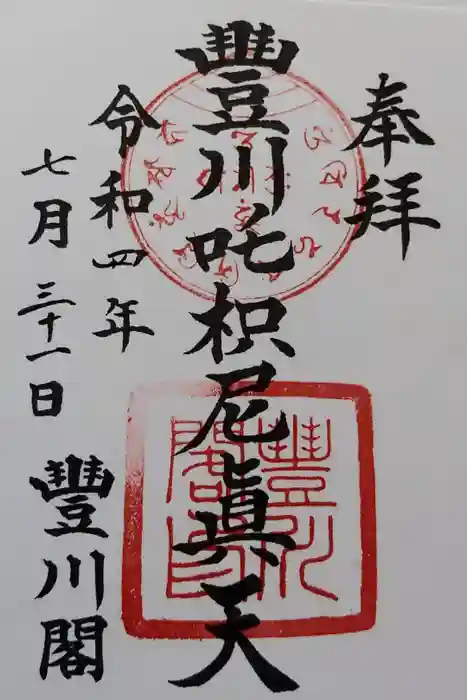 奉拝
豐川吒枳尼眞天
令和四年
七月三十一日
豐川閣
豐川閣印